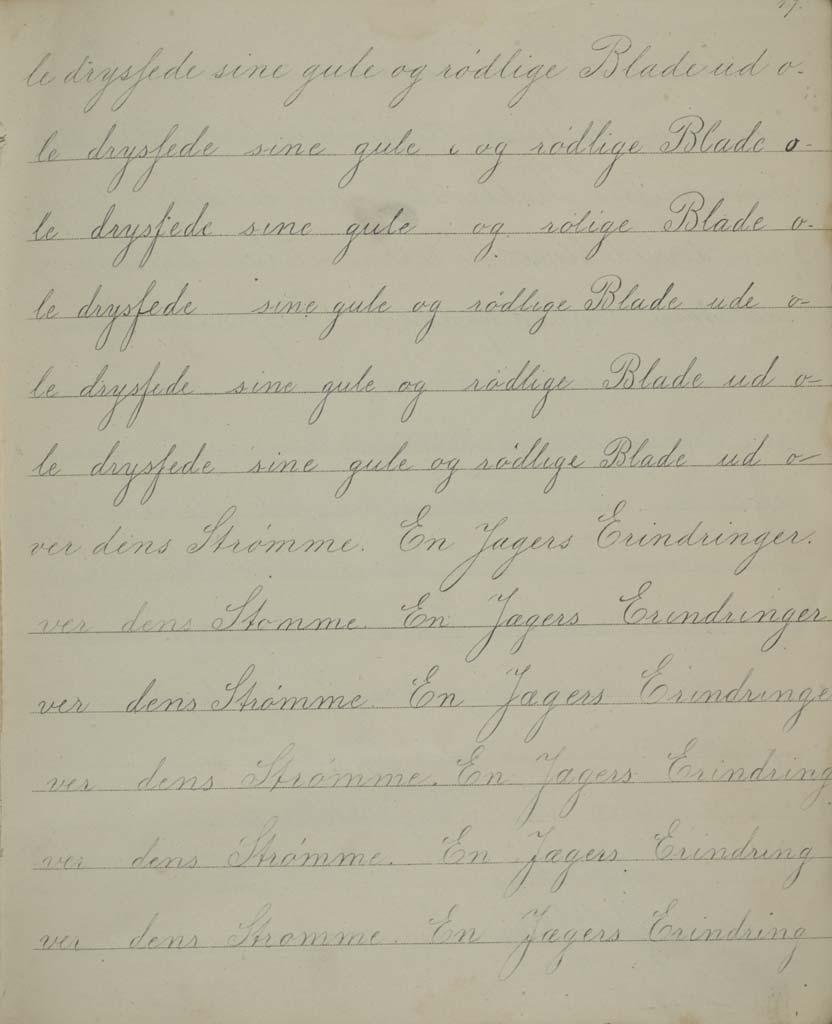 17.
le drysfede sine gule og rødlige Blade ud o-
le drysfede sine gule og rødlige Blade o-
le drysfede sine gule og rølige Blade o-
le drysfede sine gule og rødlige Blade ude o-
le drysfede sine gule og rødlige Blade ud o-
le drysfede sine gule og rødlige Blade ud o-
ver dens Strømme. En Jægers Erindringer.
ver dens Stomme. En Jægers Erindringer
ver dens Strømme. En Jægers Erindringe
ver dens Strømme. En Jægers Erindring
ver dens Strømme. En Jægers Erindring
ver dens Strømme. En Jægers Erindring